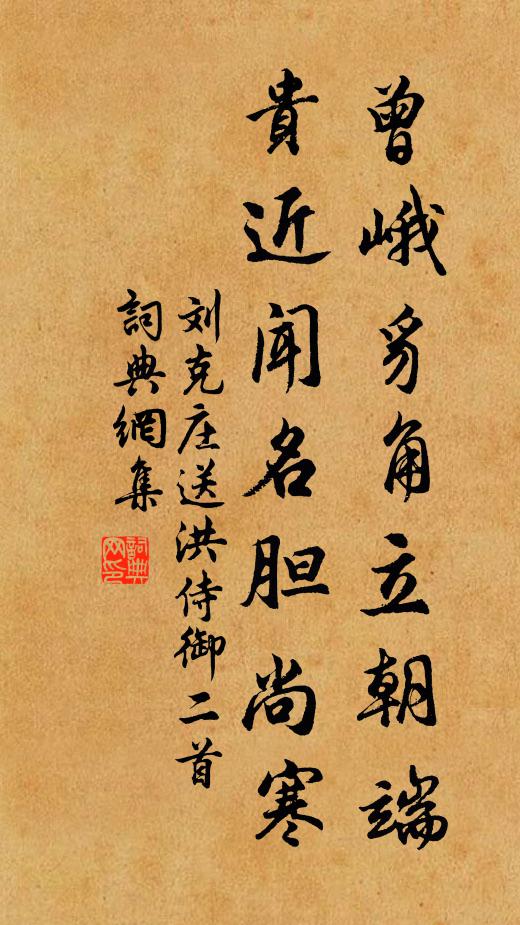 曾峨豸角立朝端
貴近闻名胆尚寒
刘克庄送洪侍御二首
詞典網集
詞典網印